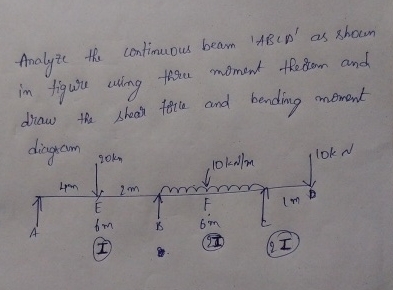 Analyze the continuous beam 'ABCD' as shown
in figure using three moment theorem and
draw the shear force and bending moment
diagram
20kn 10kN/m 10kN
4m 2m
E F 1m D
A 6m B 6m C
I 2I 2I